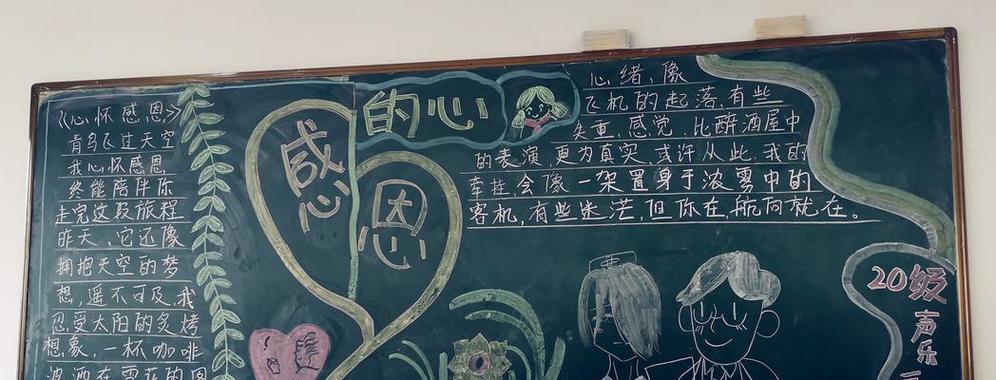 《心怀感恩》
青鸟飞过天空
我心怀感恩
终能陪伴你
走完这段旅程
昨天,它还像
拥抱天空的梦
想,遥不可及,我
忍受太阳的炙烤
想象,一杯咖啡
洒在雪花的
感恩
的心
心绪,像
飞机的起落,有些
失重,感觉,比醉酒屋中
的表演,更为真实,或许从此,我的
牵挂,会像一架置身于浓雾中的
客机,有些迷茫,但你在,航向就在。
20级
声乐